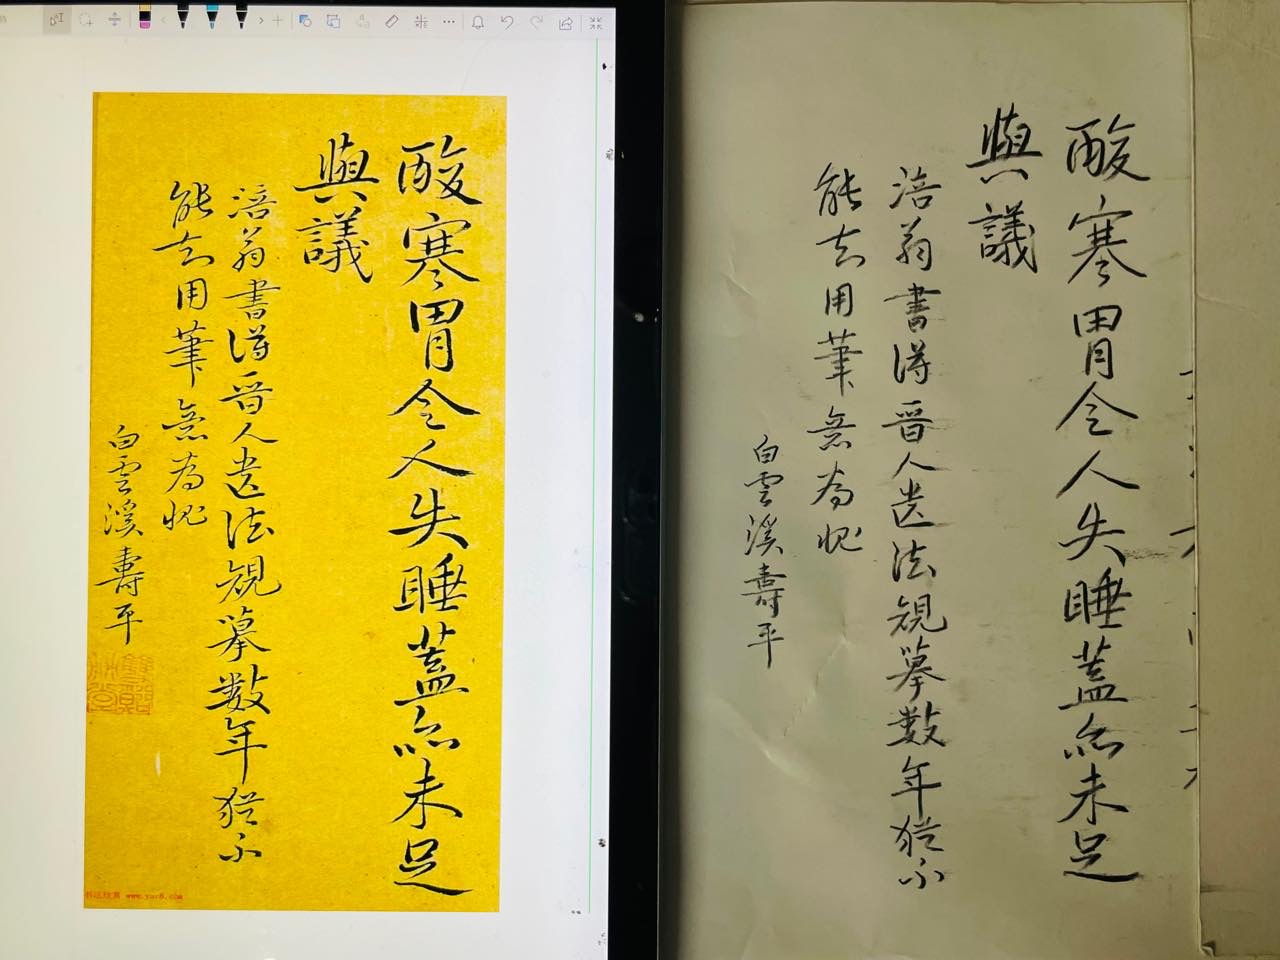 酸寒胃令人失睡蓋亦未足
與議
涪翁書得晉人遺法規摹數年猶不
能去用筆無為愧
白雲溪壽平
www.yac8.com
酸寒胃令人失睡蓋亦未足
與議
涪翁書得晉人遺法規摹數年猶不
能去用筆無為愧
白雲溪壽平